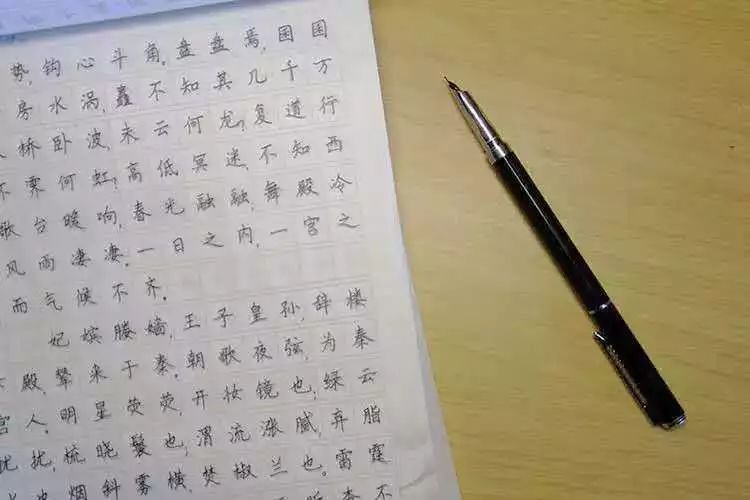 势,钩心斗角。盘盘焉,囷囷
房水涡,矗不知其几千万
桥卧波,未云何龙?复道行
不霁何虹?高低冥迷,不知西
歌台暖响,春光融融;舞殿冷
风雨凄凄。一日之内,一宫之
而气候不齐。
妃嫔媵嫱,王子皇孙,辞楼
殿,辇来于秦。朝歌夜弦,为秦
宫人。明星荧荧,开妆镜也;绿云
扰扰,梳晓鬟也;渭流涨腻,弃脂
也;烟斜雾横,焚椒兰也。雷霆